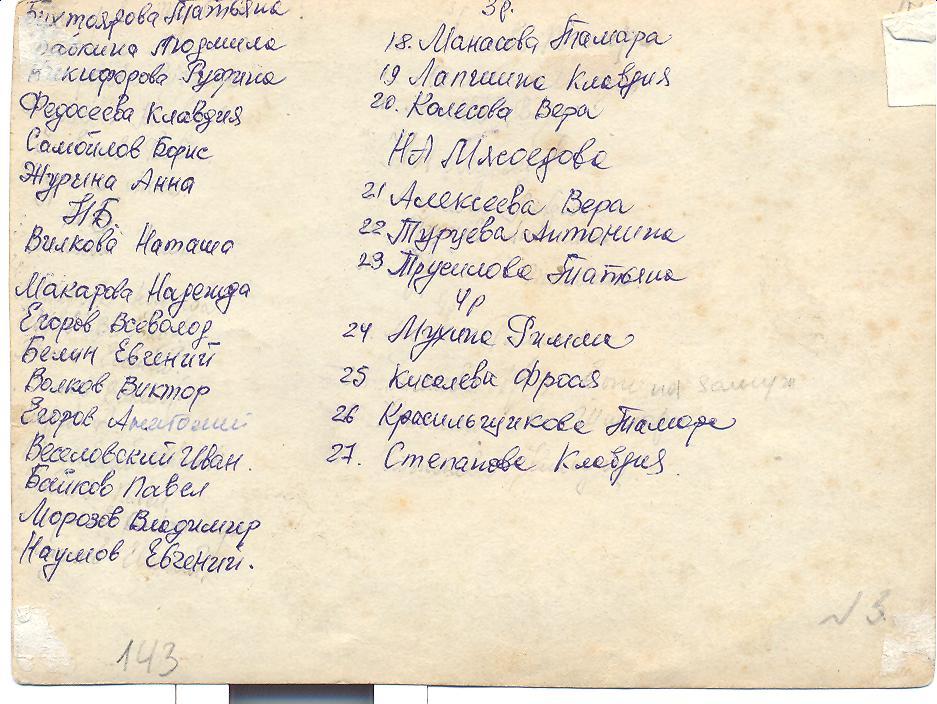 Бихтоярова Татьяна
Людмила
Никифорова Руфина
Федосеева Клавдия
Самойлов Борис
Журина Анна
НБ.
Вилкова Наташа
Макарова Надежда
Егоров Всеволод
Белин Евгений
Волков Виктор
Егоров Анатолий
Веселовский Иван.
Байков Павел
Морозов Владимир
Наумов Евгений.
143
3р.
18. Манасова Тамара
19 Лапшина Клавдия
20. Колесова Вера
НА Мясоедова
21 Алексеева Вера
22 Туруева Антонина
23 Трусилова Татьяна
4р
24 Мухина Римма
25 Киселева Фрося
26 Красильщикова Тамара
27. Степанова Клавдия
на замуж
√ 3.